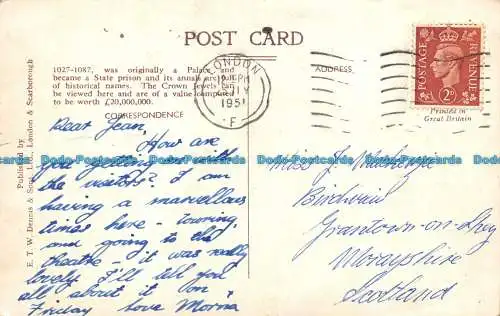 POST CARD
1027-1087, was originally a Palace and
became a State prison and its annals are full
of historical names. The Crown Jewels can
be viewed here and are of a value computed
to be worth £20,000,000.
CORRESPONDENCE
Dear Jean,
How are
you getting on with
the visitors? I am
having a marvellous
time here - touring
and going to the
theatre - it was really
lovely. I'll tell you
all about it on
Friday love Morna
Published by
E. T. W. Dennis & Sons, Ltd., London & Scarborough
LONDON
PM
1951
F
ADDRESS
POSTAGE
REVENUE
2D
Printed in
Great Britain
Miss J.
Grantown-on-Spey
Morayshire
Scotland